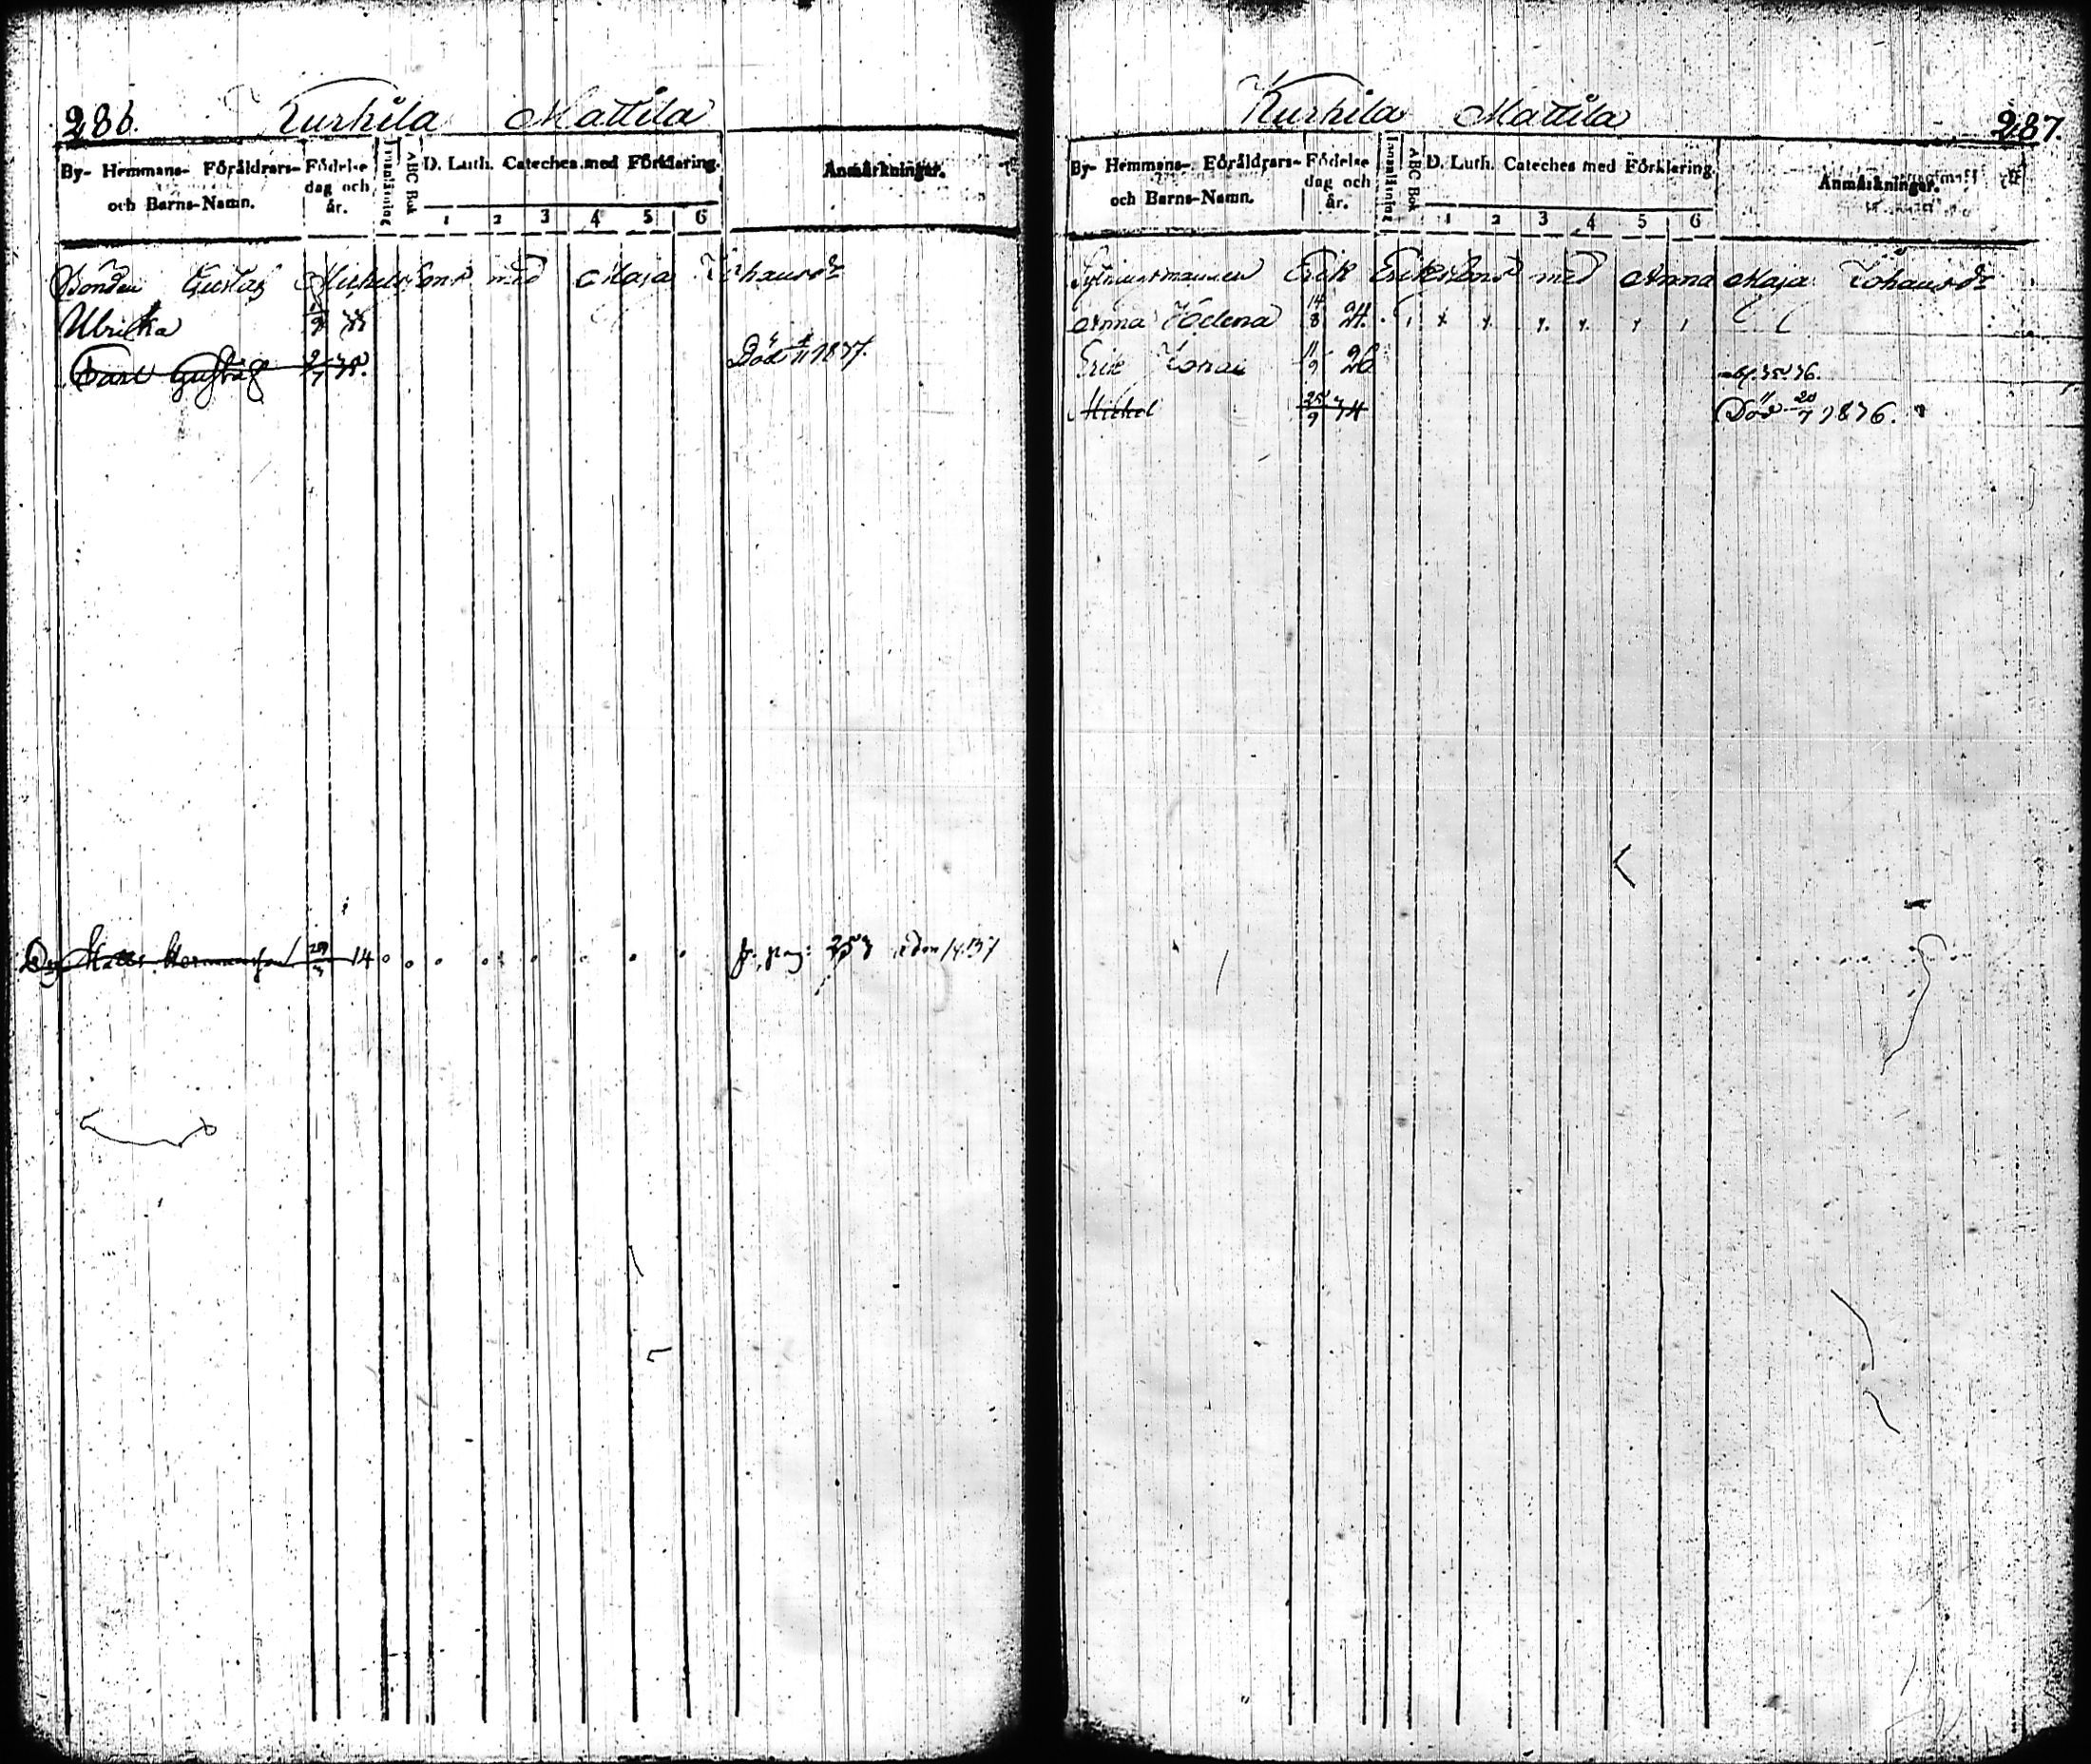 286. Kurhila Mattila
By- Hemmans- Föräldrars- och Barns-Namn.
Födelse dag och år.
Innanläsning
ABC Bok
D. Luth. Cateches med Förklaring.
1 2 3 4 5 6
Anmärkningar.
Bonden Gustaf Michelsson med Maja Johansdr
Ulrika
Carl Gustaf
Död 1837.
Dr Matts Hermansson 14
fr. pag: 253
Kurhila Mattila 287.
By- Hemmans- Föräldrars- och Barns-Namn.
Födelse dag och år.
Innanläsning
ABC Bok
D. Luth. Cateches med Förklaring.
1 2 3 4 5 6
Anmärkningar.
Erik Eriksson med Anna Maja Johansdr
Anna 14/8 24.
Erik 11/9 26
Michel 25/9 34
Död 20/7 1836.